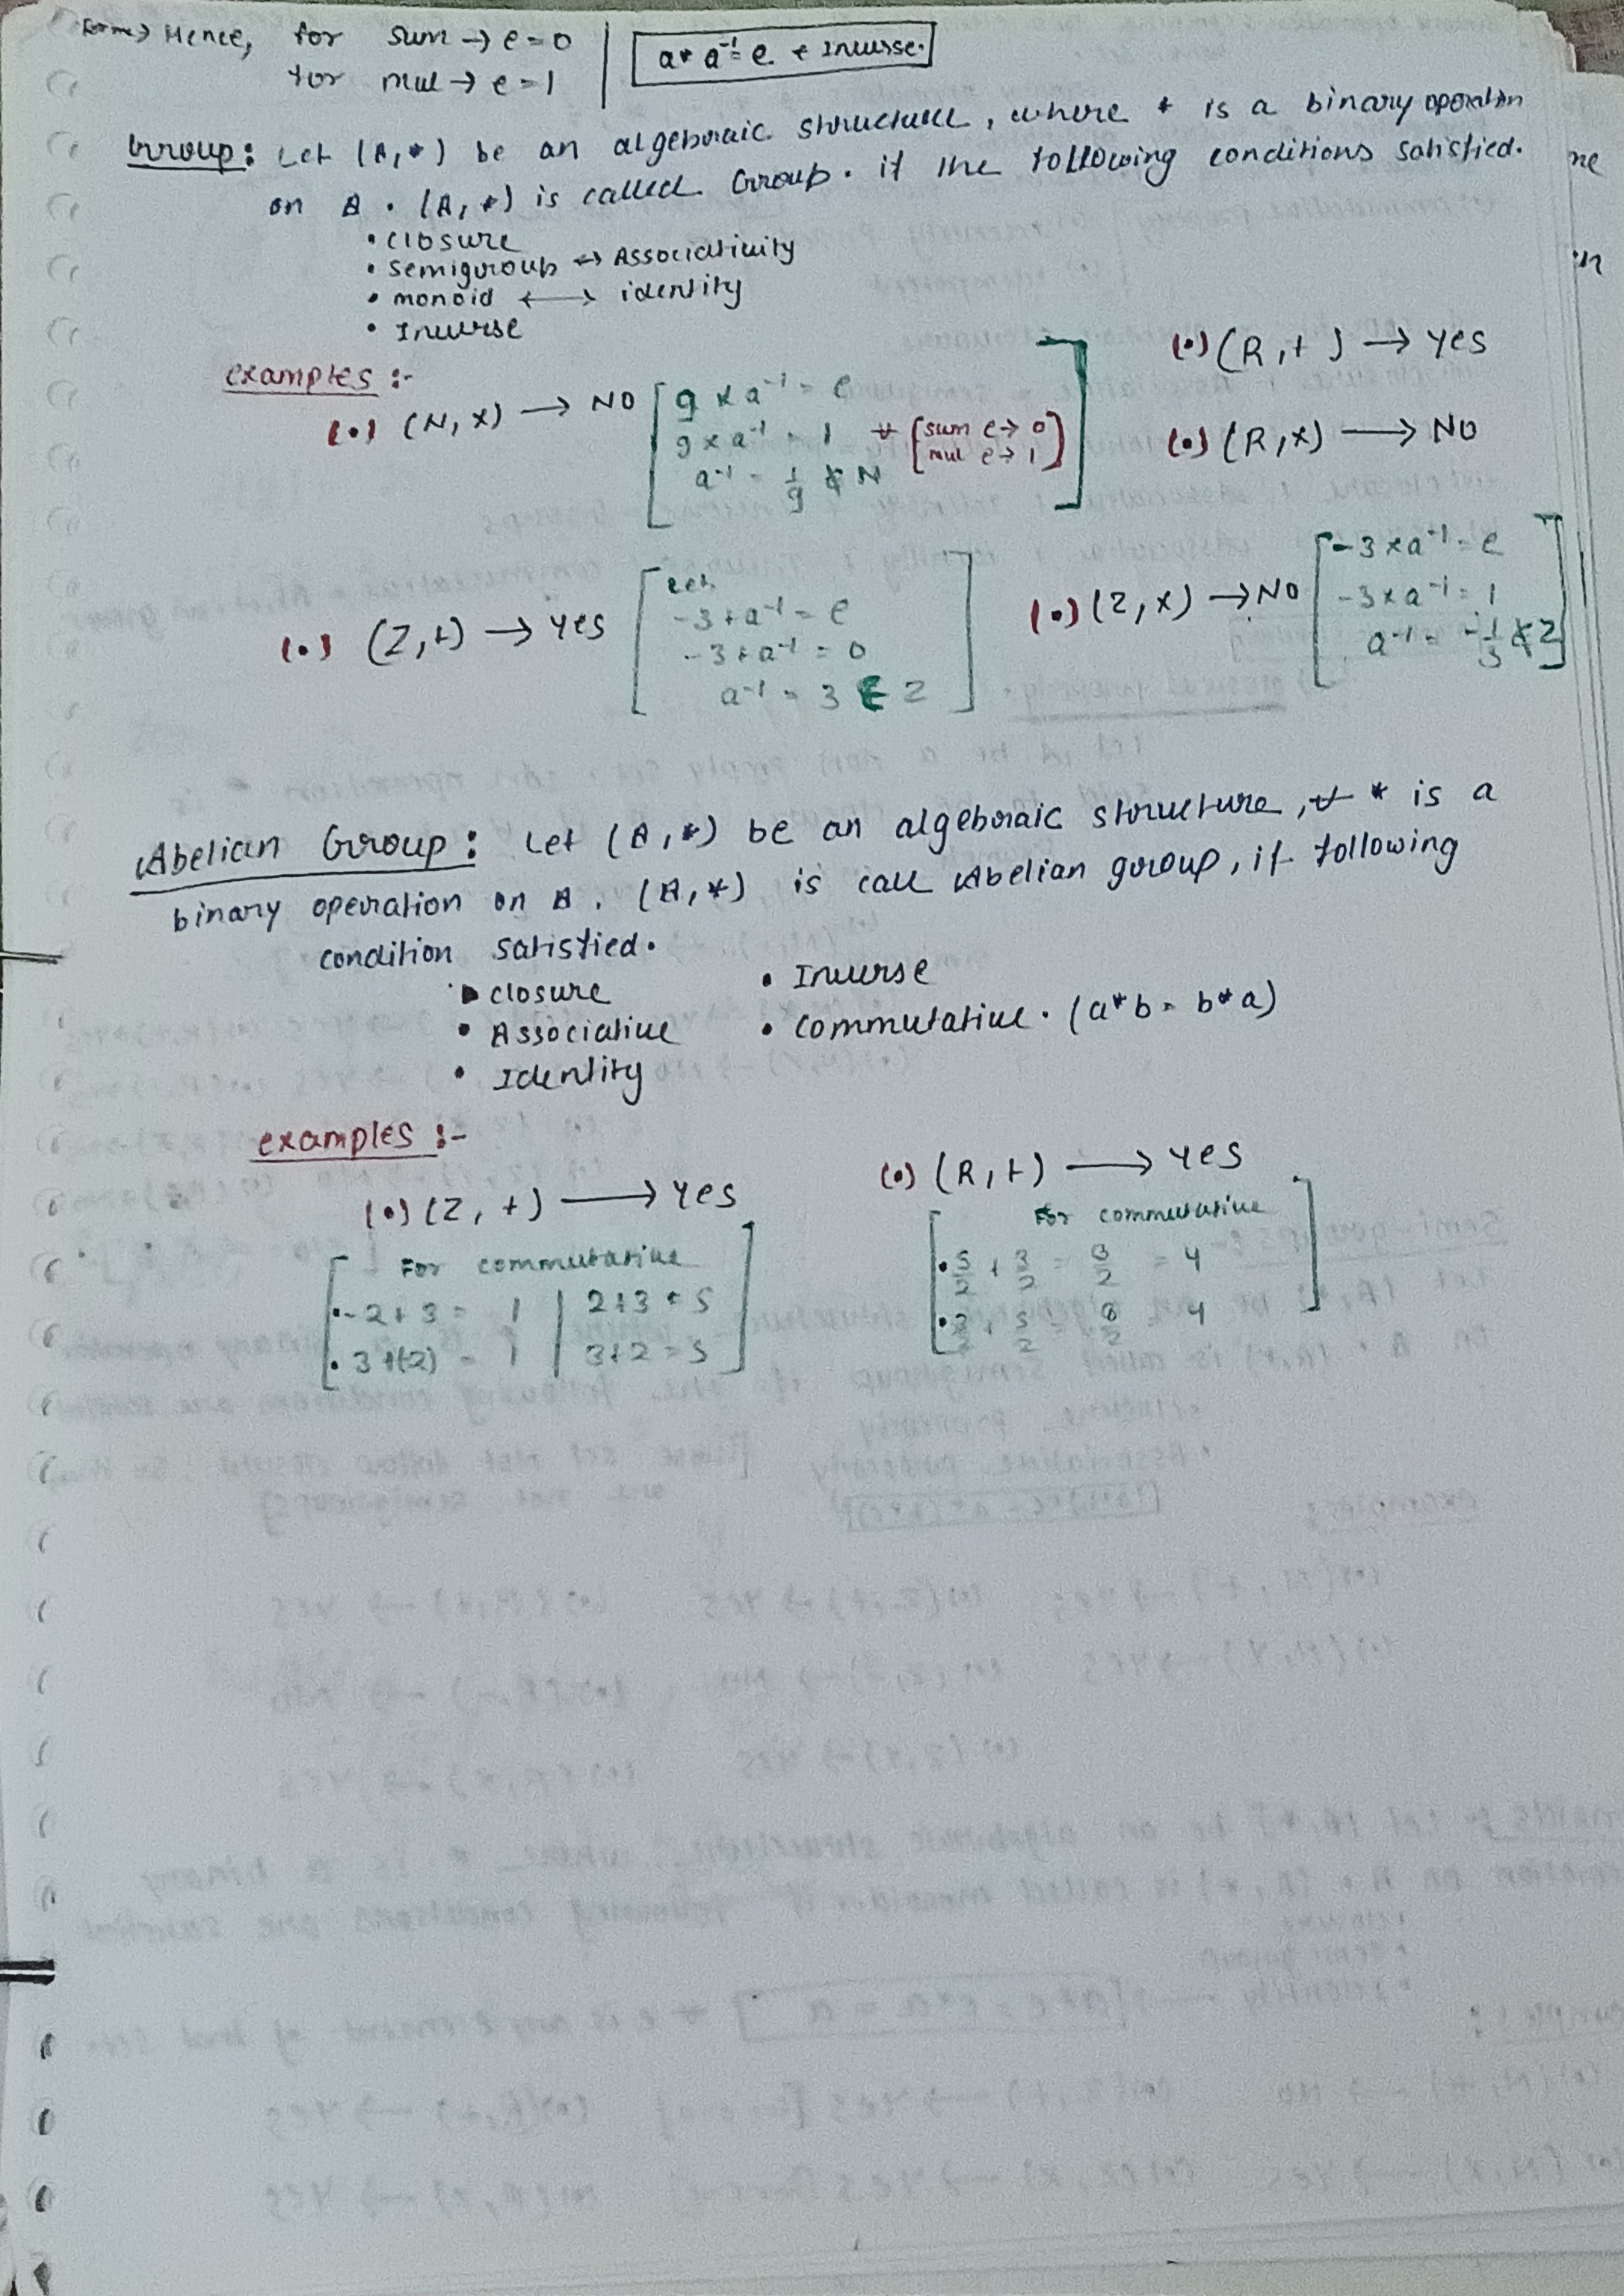 Hence, for sum → e = 0
for mul → e = 1
a * a⁻¹ = e Inverse.
Group: Let (A, *) be an algebraic structure, where * is a binary operation
on A. (A, *) is called Group. if the following conditions satisfied.
• closure
• semigroup ↔ Associativity
• monoid ↔ identity
• Inverse
examples :-
(•) (N, x) → NO
9 x a⁻¹ = e
9 x a⁻¹ = 1
a⁻¹ = 1/9 ∉ N
sum e → 0
mul e → 1
(•) (R, +) → Yes
(•) (R, x) → NO
(•) (Z, +) → Yes
Let
-3 + a⁻¹ = e
-3 + a⁻¹ = 0
a⁻¹ = 3 ∈ Z
(•) (Z, x) → NO
-3 x a⁻¹ = e
-3 x a⁻¹ = 1
a⁻¹ = -1/3 ∉ Z
Abelian Group: Let (A, *) be an algebraic structure, * is a
binary operation on A. (A, *) is call Abelian group, if following
condition satisfied.
• closure
• Associative
• Identity
• Inverse
• Commutative. (a*b = b*a)
examples :-
(•) (Z, +) → Yes
For commutative
• -2 + 3 = 1 | 2+3 = 5
• 3+(-2) = 1 | 3+2 = 5
(•) (R, +) → Yes
For commutative
• 5/2 + 3/2 = 8/2 = 4
• 3/2 + 5/2 = 8/2 = 4
ne